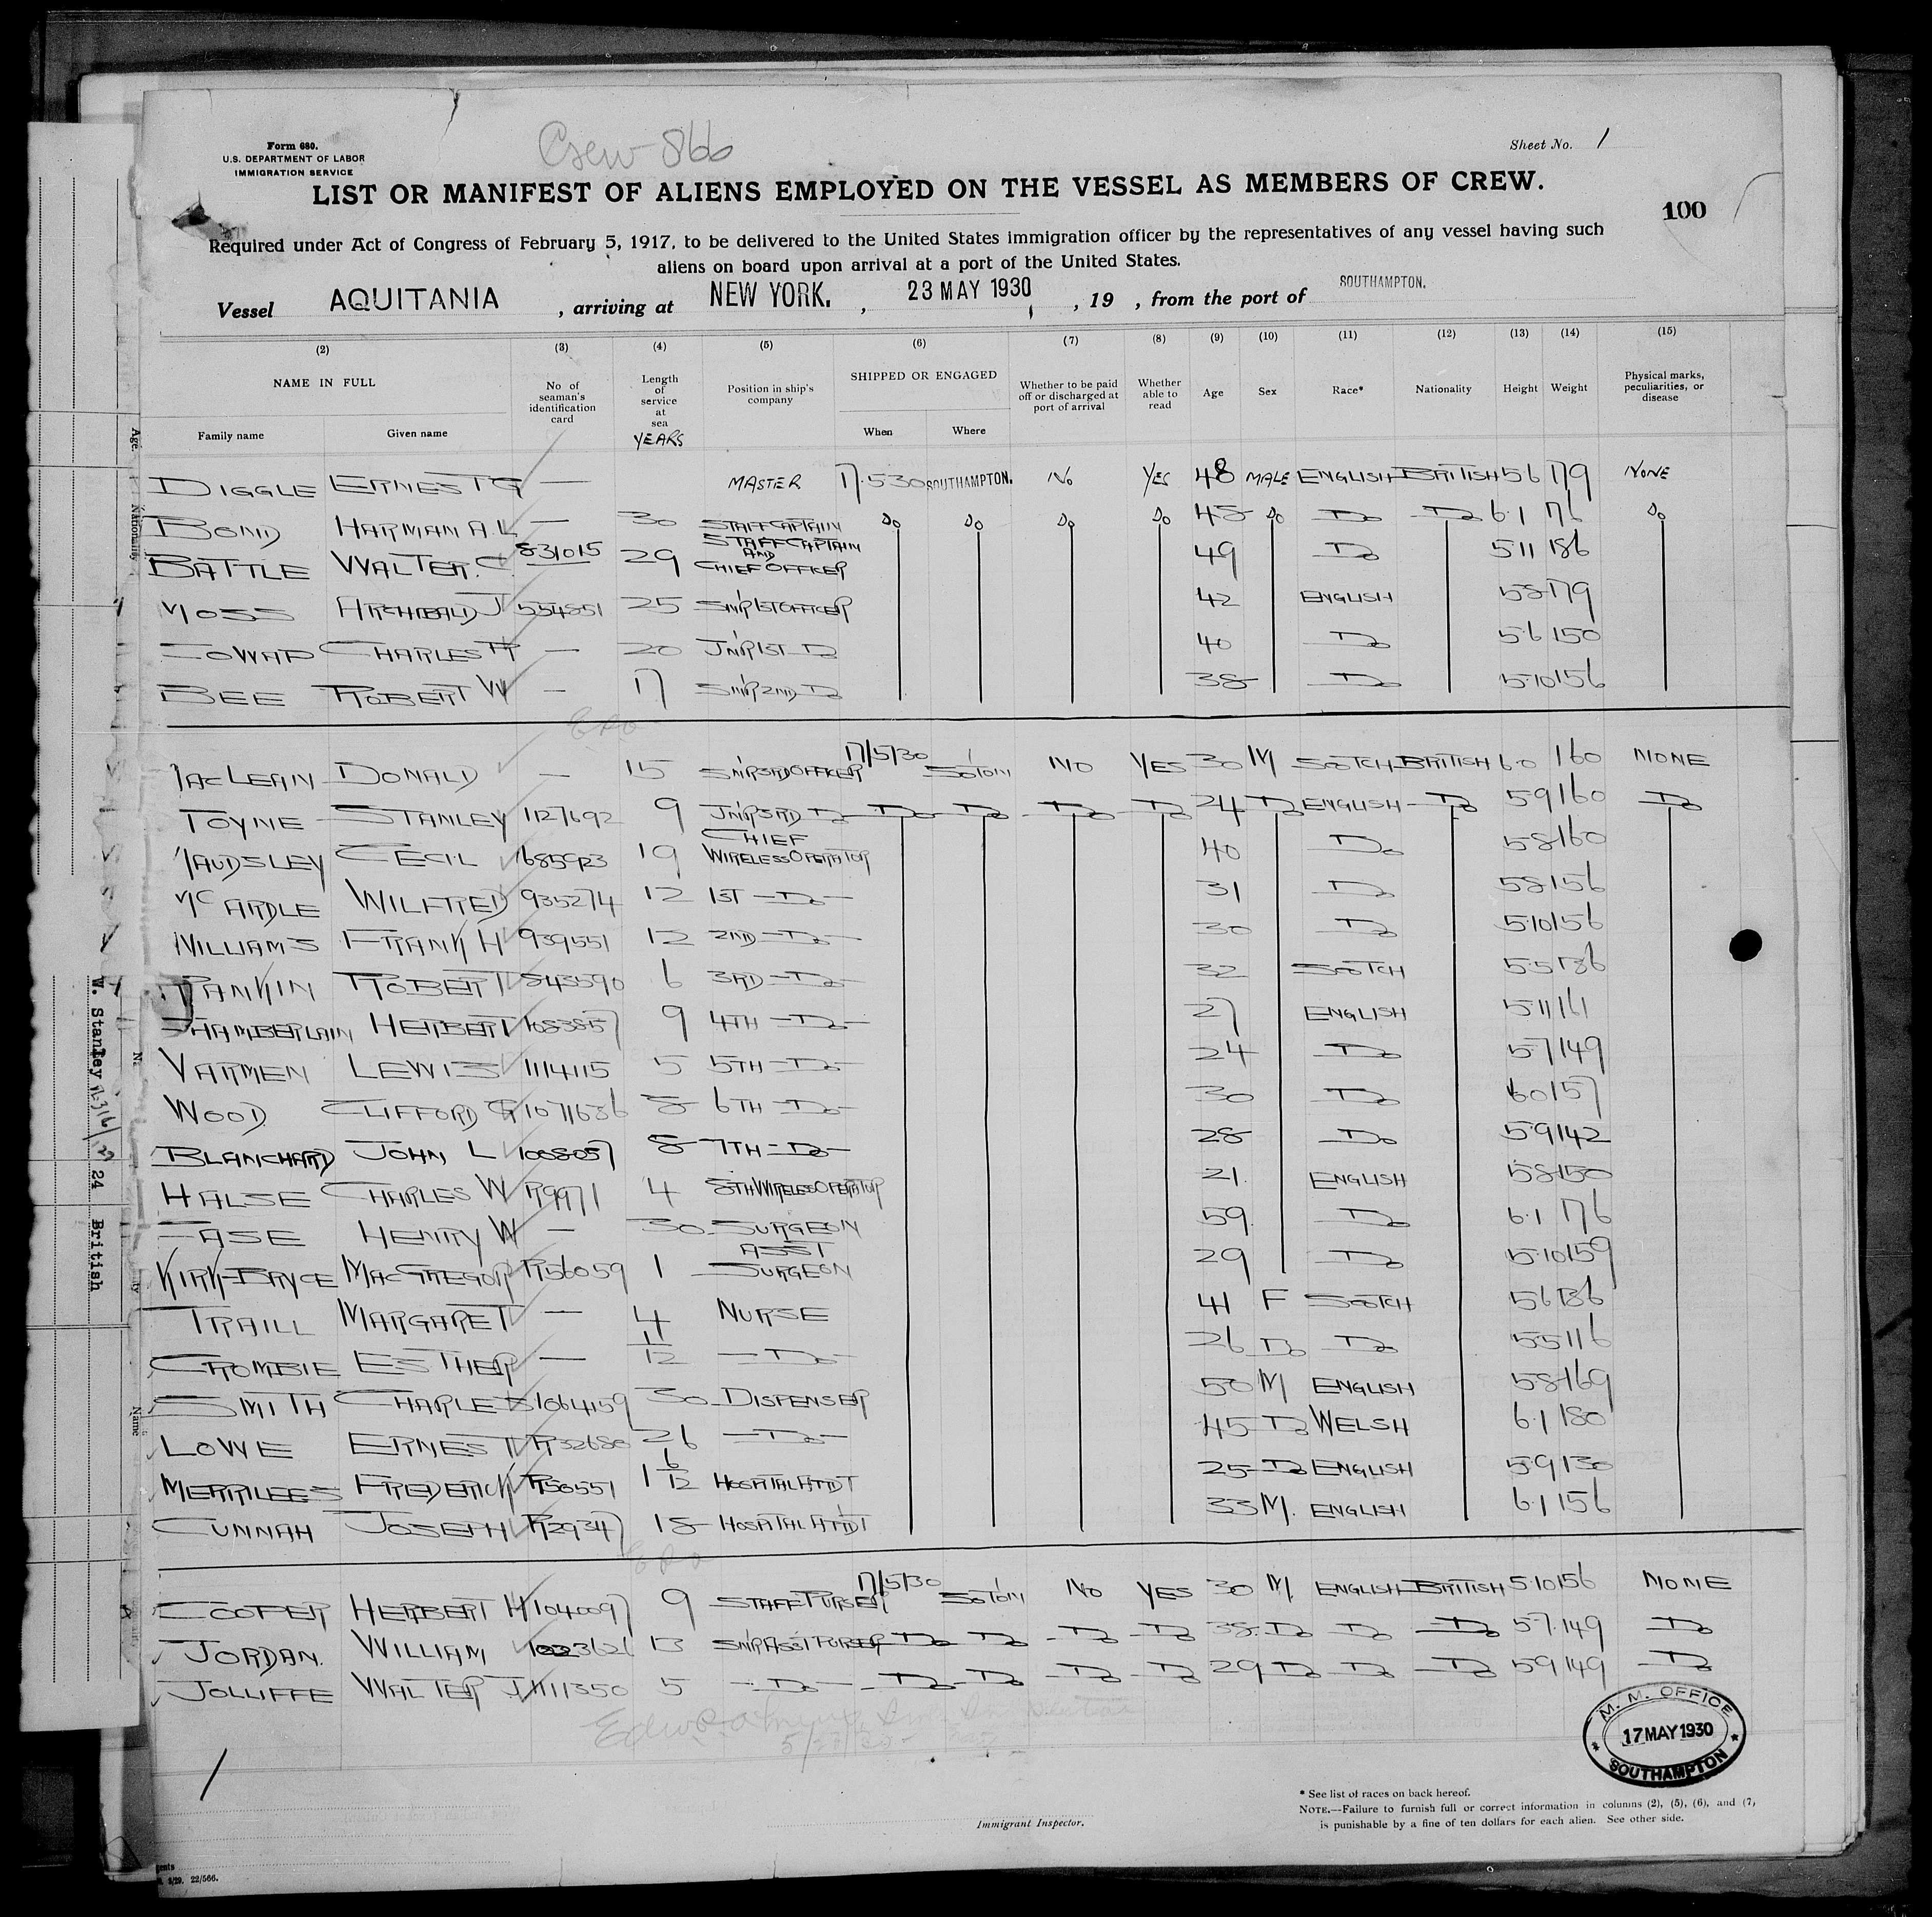 Crew 866
Form 680.
U.S. DEPARTMENT OF LABOR
IMMIGRATION SERVICE
Sheet No. 1
LIST OR MANIFEST OF ALIENS EMPLOYED ON THE VESSEL AS MEMBERS OF CREW.
100
Required under Act of Congress of February 5, 1917, to be delivered to the United States immigration officer by the representatives of any vessel having such
aliens on board upon arrival at a port of the United States.
Vessel AQUITANIA , arriving at NEW YORK. , 23 MAY 1930 , 19 , from the port of SOUTHAMPTON.
(2) (3) (4) (5) (6) (7) (8) (9) (10) (11) (12) (13) (14) (15)
NAME IN FULL
Family name Given name
No. of seaman's identification card
Length of service at sea
YEARS
Position in ship's company
SHIPPED OR ENGAGED
When Where
Whether to be paid off or discharged at port of arrival
Whether able to read
Age Sex Race* Nationality Height Weight
Physical marks, peculiarities, or disease
DIGGLE ERNEST G — MASTER 17.5.30 SOUTHAMPTON. No YES 48 MALE ENGLISH BRITISH 5 6 179 NONE
BOND HARMAN A.L — 30 STAFF CAPTAIN Do Do Do Do 48 Do Do Do 6.1 176 Do
BATTLE WALTER.C. 831015 29 STAFF CAPTAIN AND CHIEF OFFICER 49 Do 5 11 186
MOSS ARCHIBALD J 554851 25 SNR 1ST OFFICER 42 ENGLISH 5 8 179
COWAP CHARLES R — 20 JNR 1ST Do 40 Do 5 6 150
BEE ROBERT W — 17 SNR 2ND Do 38 Do 5.10 156
MACLEAN DONALD — 15 SNR 3RD OFFICER 17/5/30 SOTON NO YES 30 M SCOTCH BRITISH 6.0 160 NONE
TOYNE STANLEY 1127692 9 JNR 3RD Do Do Do Do Do 24 Do ENGLISH Do 5 9 160 Do
MAUDSLEY CECIL 19 CHIEF WIRELESS OPERATOR 40 Do 5 8 160
MCARDLE WILFRED 935274 12 1ST Do 31 Do 5 8 156
WILLIAMS FRANK H 939551 12 2ND Do 30 Do 5.10 156
RANKIN ROBERT 843590 6 3RD Do 32 SCOTCH 5 5 136
CHAMBERLAIN HERBERT 1083857 9 4TH Do 27 ENGLISH 5 11 161
VARMEN LEWIS 1114115 5 5TH Do 24 Do 5 7 149
WOOD CLIFFORD G 1071686 8 6TH Do 30 Do 6 0 157
BLANCHARD JOHN L 1008057 8 7TH Do 28 Do 5 9 142
HALSE CHARLES W R9971 4 8TH WIRELESS OPERATOR 21. ENGLISH 5 8 150
EASE HENRY W — 30 SURGEON 59 Do 6.1 176
KIRK-BRYCE MACGREGOR R56059 1 ASST SURGEON 29 Do 5.10 159
TRAILL MARGARET — 4 NURSE 41 F SCOTCH 5 6 136
CROMBIE ESTHER — 1/12 Do 26 Do Do 5 5 116
SMITH CHARLES 1064159 30 DISPENSER 50 M ENGLISH 5 8 169
LOWE ERNEST R32680 26 Do 45 Do WELSH 6.1 180
MERRILEES FREDERICK R50551 1 6/12 HOSPITAL ATTDT 25 Do ENGLISH 5 9 130
CUNNAH JOSEPH R12934 18 HOSPITAL ATTDT 33 M. ENGLISH 6.1 156
COOPER HERBERT H 1040097 9 STAFF PURSER 17/5/30 SOTON NO YES 30 M ENGLISH BRITISH 5.10 156 NONE
JORDAN. WILLIAM 1023626 13 SNR ASST PURSER Do Do Do Do 38 Do Do Do 5 7 149 Do
JOLLIFFE WALTER J 1111350 5 Do Do Do Do Do 29 Do Do Do 5 9 149 Do
M. M. OFFICE
17 MAY 1930
SOUTHAMPTON
1
* See list of races on back hereof.
NOTE.—Failure to furnish full or correct information in columns (2), (5), (6), and (7,
is punishable by a fine of ten dollars for each alien. See other side.
Immigrant Inspector.
3/29. 22/566.
Age.
Nationality
W. Stanley
24 British
Name